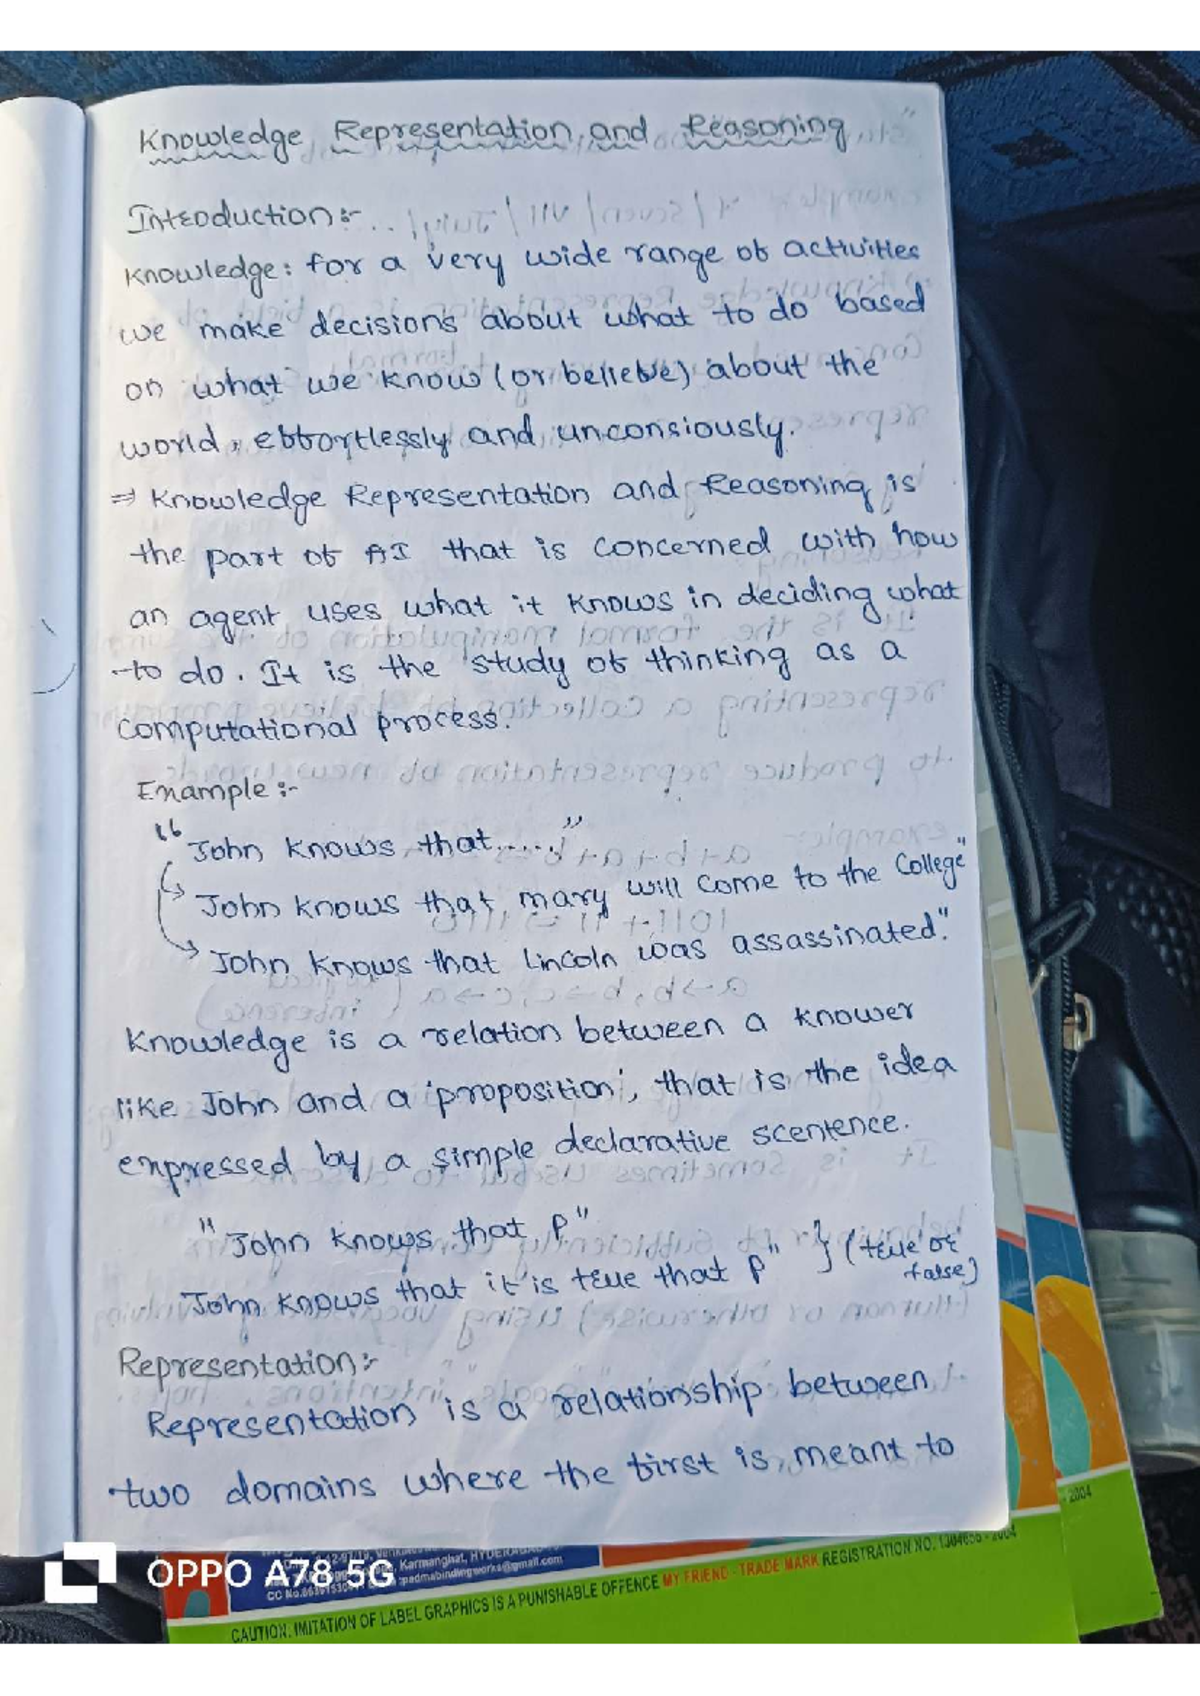 Knowledge Representation and Reasoning
Introduction:-
Knowledge: for a very wide range of activities
we make decisions about what to do based
on what we know (or believe) about the
world, effortlessly and unconsiously.
⇒ Knowledge Representation and Reasoning is
the part of AI that is concerned with how
an agent uses what it knows in deciding what
to do. It is the study of thinking as a
computational process.
Example :-
"John knows that....."
↳ John knows that mary will come to the College"
↳ John knows that Lincoln was assassinated."
Knowledge is a relation between a knower
like John and a 'proposition', that is the idea
expressed by a simple declarative scentence.
"John knows that P"
John knows that it is true that P" } (true or
false)
Representation:-
Representation is a relationship between
two domains where the first is meant to
OPPO A78 5G
Karmanghat, HYDERABAD
padmabindingworks@gmail.com
CAUTION: IMITATION OF LABEL GRAPHICS IS A PUNISHABLE OFFENCE MY FRIEND - TRADE MARK REGISTRATION NO.
- 2004